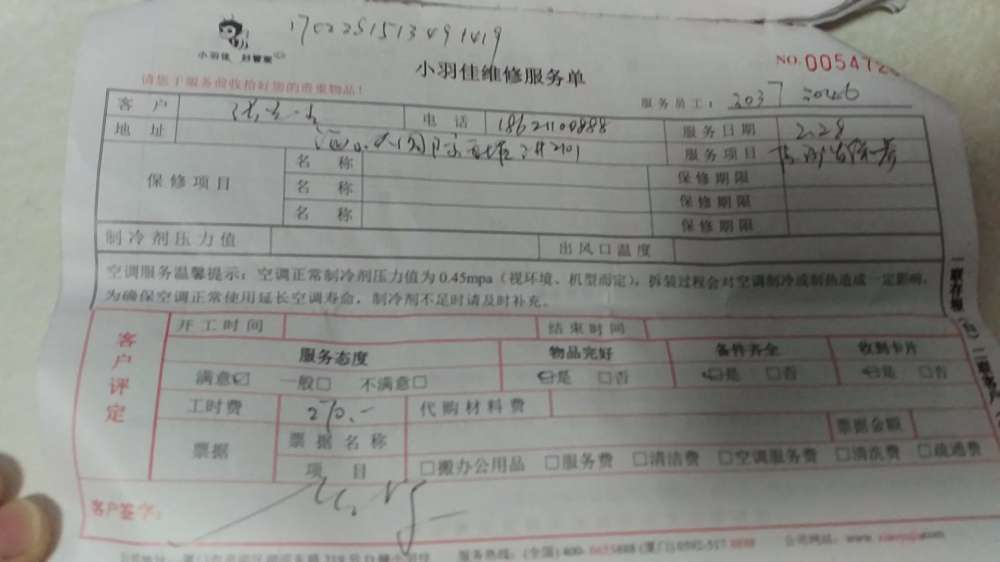 1702251513491419
小羽佳 好管家
小羽佳维修服务单
NO.005472
请您于服务前收拾好您的贵重物品!
服务员工: 3037
客户 电话 18621100888 服务日期 2.28
地址 服务项目
保修项目 名称 保修期限
名称 保修期限
名称 保修期限
制冷剂压力值 出风口温度
空调服务温馨提示:空调正常制冷剂压力值为0.45mpa(视环境、机型而定),拆装过程会对空调制冷或制热造成一定影响,
为确保空调正常使用延长空调寿命,制冷剂不足时请及时补充。
客户评定
开工时间 结束时间
服务态度 物品完好 备件齐全 收到卡片
满意☑ 一般□ 不满意□ ☑是 □否 ☑是 □否 ☑是 □否
工时费 270.- 代购材料费
票据 票据名称 票据金额
项目 □搬办公用品 □服务费 □清洁费 □空调服务费 □清洗费 □疏通费
客户签字:
服务热线:(全国)400- (厦门)0592-517
公司网站:www.